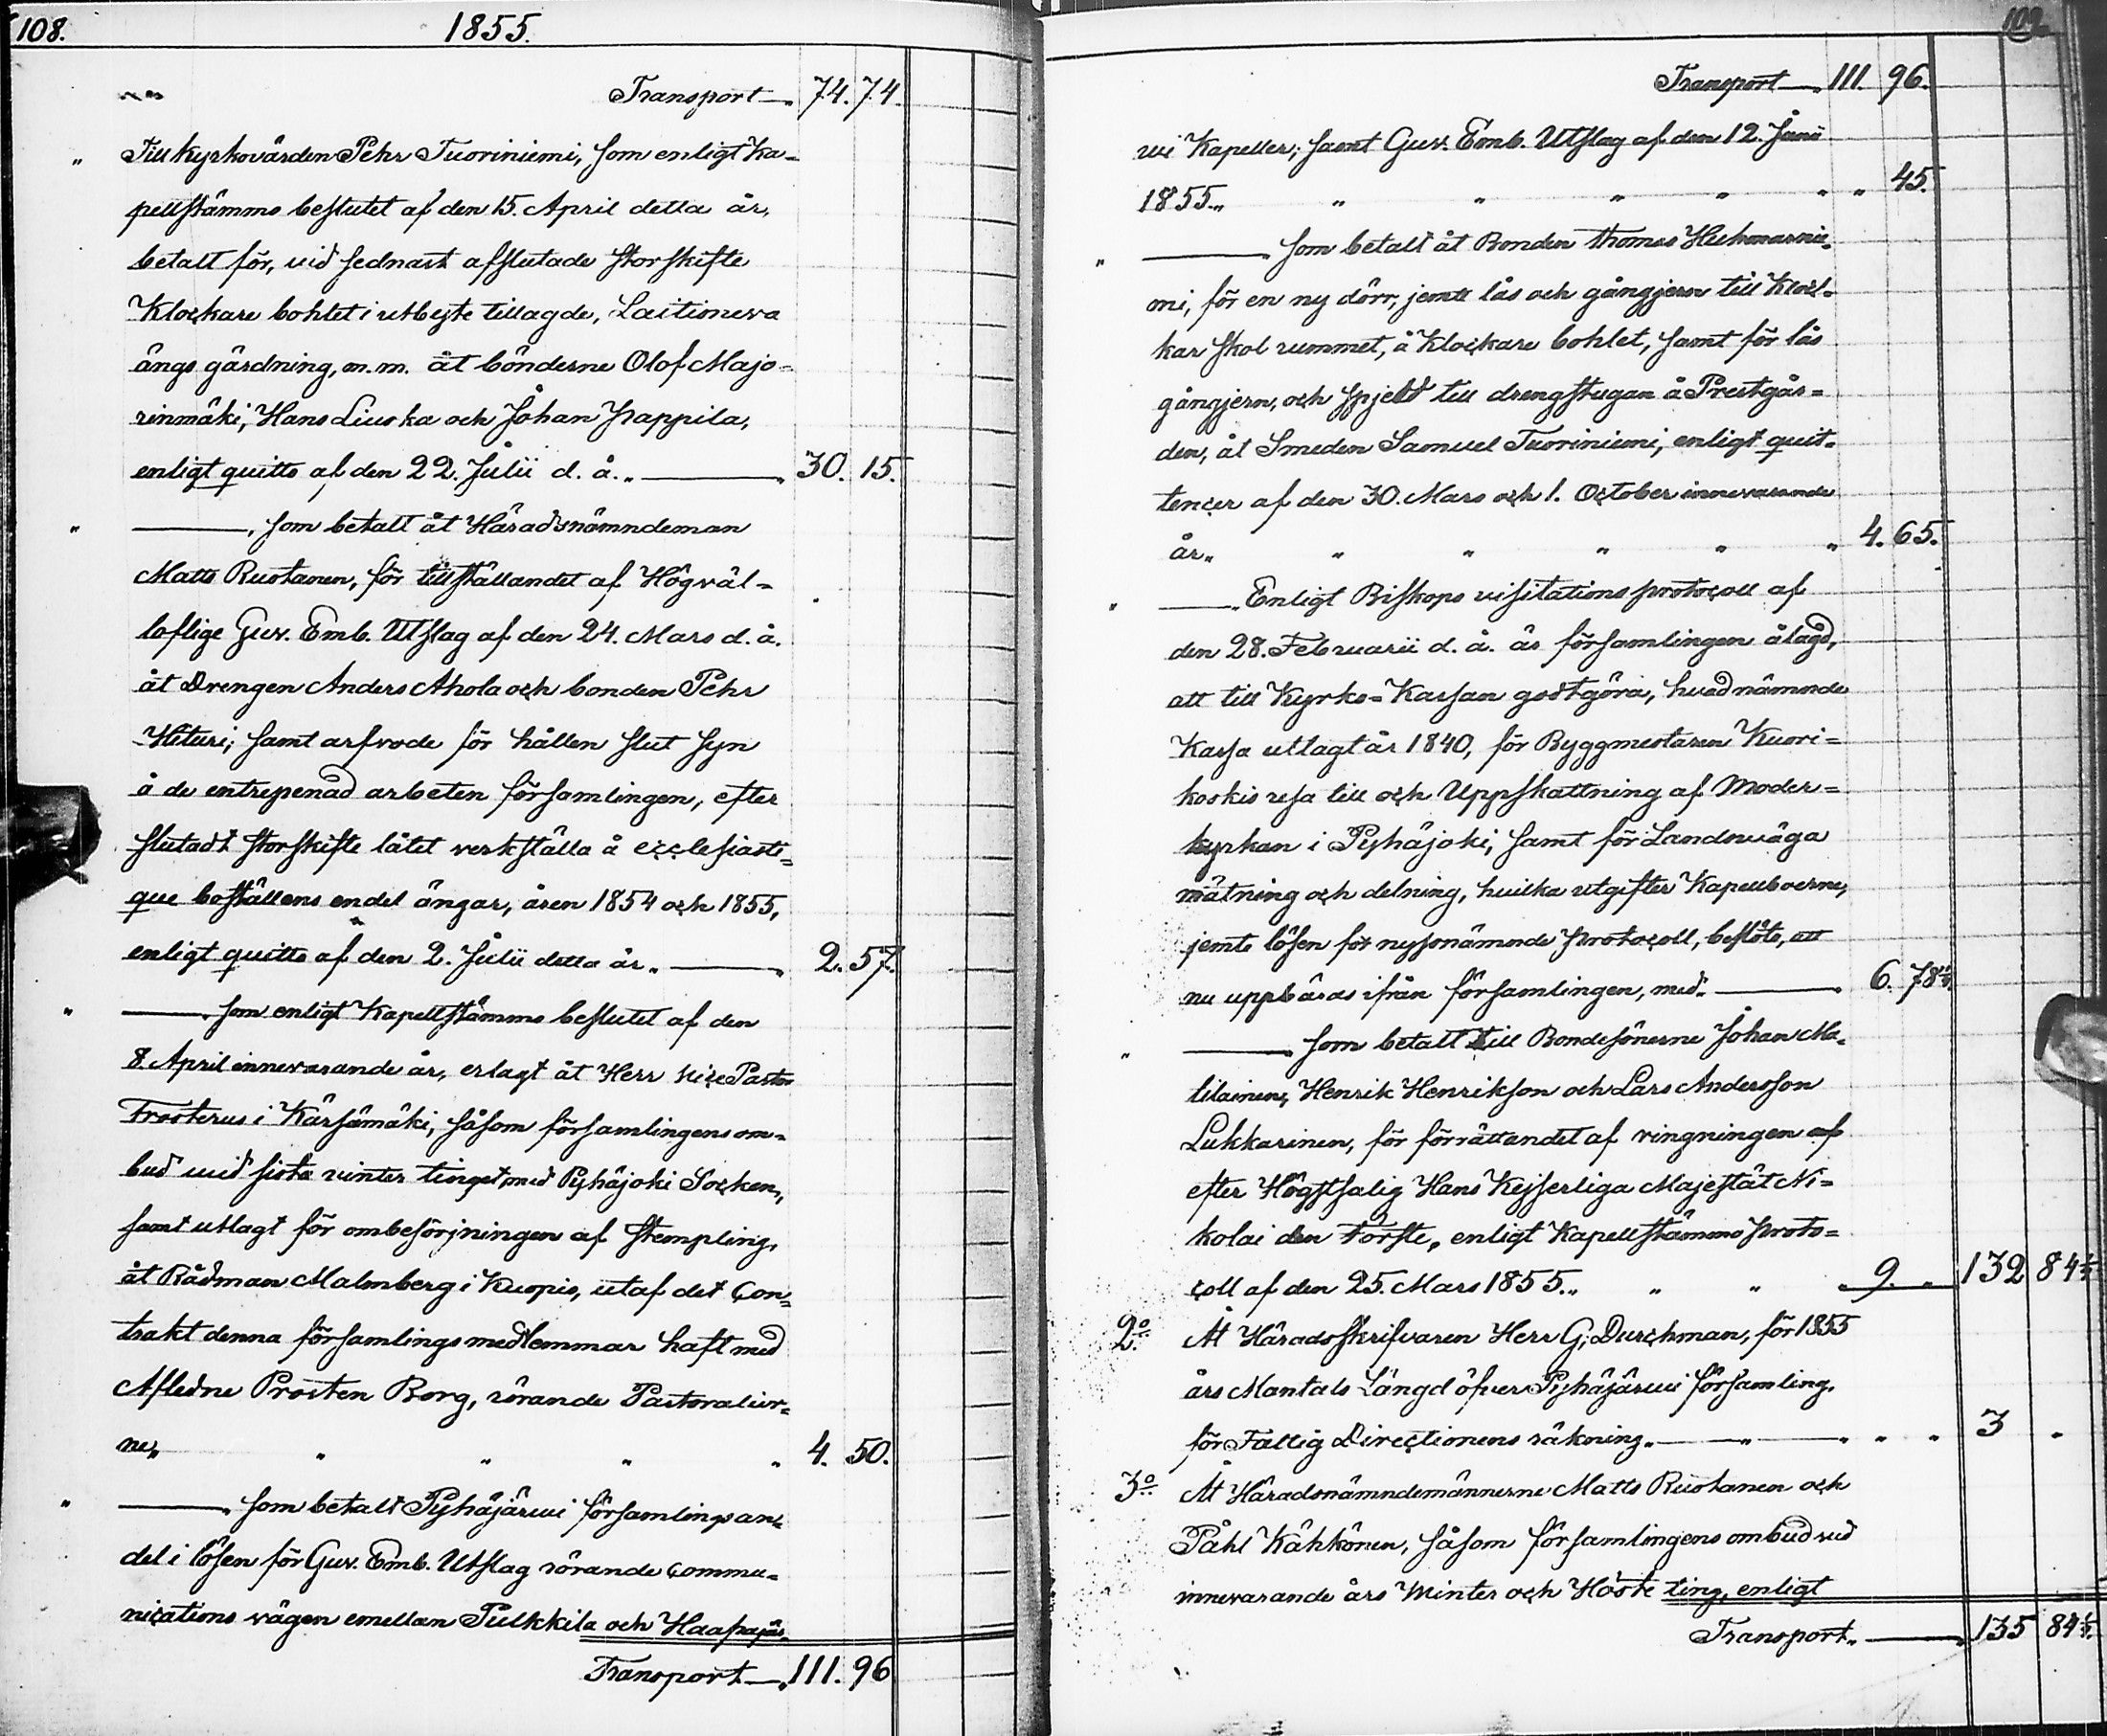 108.
1855.
Transport 74. 74.
" Till Kyrkovärden Pehr Tuoriniemi, som enligt Ka-
pellstämmo beslutet af den 15. April detta år,
betalt för, vid sednast afslutade storskifte
Klockare bohlet i utbyte tillagde, Laitioneva
ängs gärdning, m.m. åt bönderne Olof Majo-
rinmäki, Hans Liuska och Johan Frappila,
enligt quitto af den 22. Julii d. å. " 30. 15.
" , som betalt åt Häradsnämndeman
Matts Ruotanen, för tillställandet af Högväl-
loflige Guv. Emb. Utslag af den 24. Mars d. å.
åt Drengen Anders Ahola och bonden Pehr
Hituri; samt arfvode för hållen slut syn
å de entrepenad arbeten församlingen, efter
slutadt storskifte låtet verkställa å ecclesiasti-
que boställens endel ängar, åren 1854 och 1855,
enligt quitto af den 2. Julii detta år. " 2. 57.
" som enligt Kapellstämmo beslutet af den
8. April innevarande år, erlagt åt Herr Vice Pastor
Frosterus i Kärsämäki, såsom församlingens om-
bud vid sista vinter tinget med Pyhäjoki Socken,
samt utlagt för ombesörjningen af stempling,
åt Rådman Malmberg i Kuopio, utaf det Con-
trakt denna församlings medlemmar haft med
Afledne Prosten Borg, rörande Pastoralier-
ne, " " " " 4. 50.
" som betalt Pyhäjärvi församlings an-
del i lösen för Guv. Emb. Utslag rörande commu-
nications vägen emellan Pulkkila och Haapajär-
Transport 111. 96
109
Transport 111. 96.
vi Kapeller; samt Guv. Emb. Utslag af den 12. Junii
1855. " " " " " " " 45.
" som betalt åt Bonden Thomas Huhmarnie-
mi, för en ny dörr, jemte lås och gångjern till Klock-
kar skol rummet, å Klockare bohlet, samt för lås
gångjern, och spjeld till drengstugan å Prestgår-
den, åt Smeden Samuel Tuoriniemi, enligt quit-
tencer af den 30. Mars och 1. October innevarande
år. " " " " " " 4. 65.
" Enligt Biskops visitations protocoll af
den 28. Februarii d. å. är församlingen ålagd,
att till Kyrko-Kassan godtgöra, hvad nämnde
Kassa utlagt år 1840, för Byggmestaren Kuori-
koskis resa till och Uppskattning af Moder-
kyrkan i Pyhäjoki, samt för Landsväga
mätning och delning, hvilka utgifter Kapellboerne,
jemte lösen för nyssnämnde protocoll, beslöto, att
nu uppbäras ifrån församlingen, med. 6. 78½.
" som betalt till Bondesönerne Johan Ma-
tilainen, Henrik Henrikson och Lars Andersson
Lukkarinen, för förrättandet af ringningen af
efter Högstsalig Hans Kejserliga Majestät Ni-
kolai den Förste, enligt Kapellstämmo proto-
coll af den 25. Mars 1855. " " " 9. " 132 84½
2o. Åt Häradsskrifvaren Herr G. Durchman, för 1855
års Mantals Längd öfver Pyhäjärvi församling,
för Fattig Directionens räkning. " " " " 3 "
3o. Åt Häradsnämndemännerne Matts Ruotanen och
Påhl Kähkönen, såsom församlingens ombud vid
innevarande års Winter och Höste ting, enligt
Transport. 135 84½.